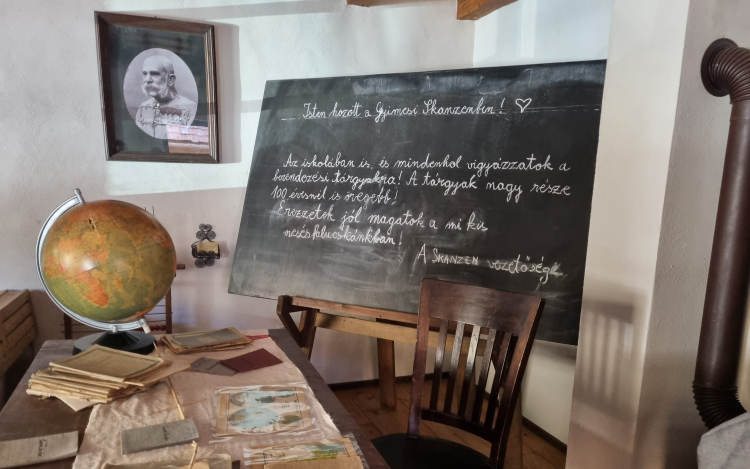 Isten hozott a Gyimesi Skanzenbin! ♡
Az iskolában is, és mindenhol vigyázzatok a
berendezési tárgyakra! A tárgyak nagy része
100 évesnél is öregebb!
Érezzétek jól magatok a mi kis
mesésfalucskánkban!
A SKANZEN vezetősége